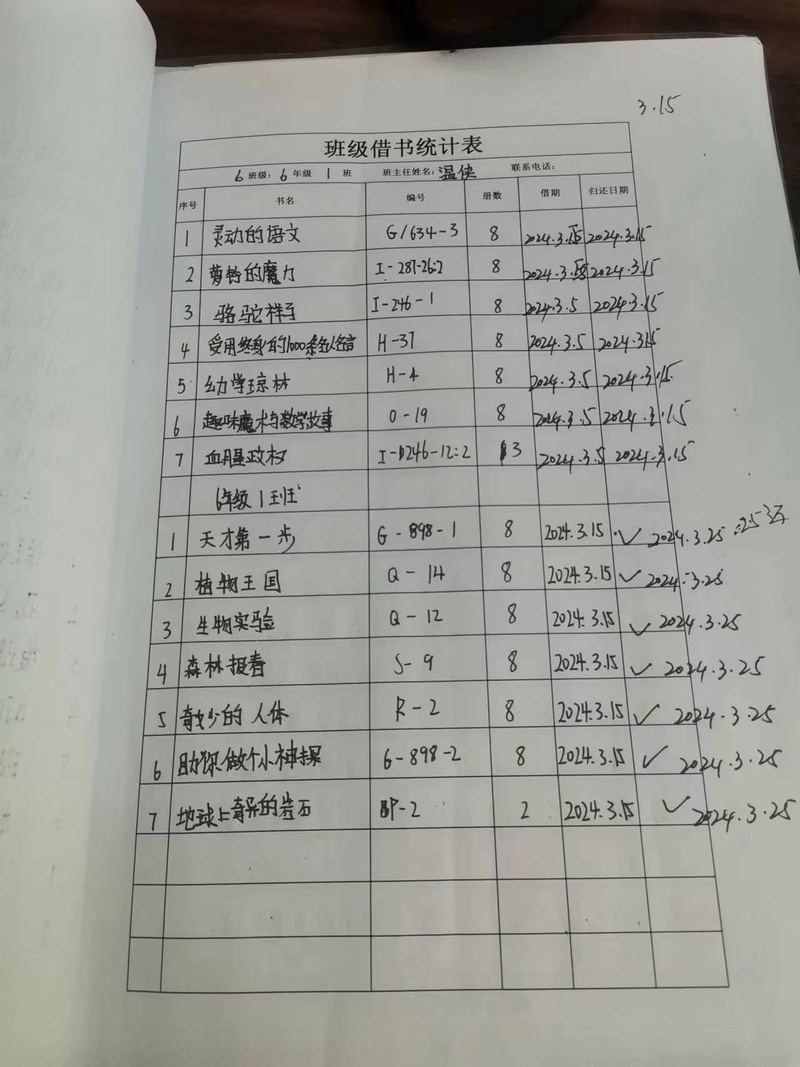 3.15
班级借书统计表
6 班级: 6 年级 1 班 班主任姓名: 温侠 联系电话:
序号 书名 编号 册数 借期 归还日期
1 灵动的语文 G/634-3 8 2024.3.5 2024.3.15
2 剪钱的魔力 I-287-26:2 8 2024.3.5 2024.3.15
3 骆驼祥子 I-246-1 8 2024.3.5 2024.3.15
4 受用终身的1000条名人名言 H-37 8 2024.3.5 2024.3.15
5 幼学琼林 H-4 8 2024.3.5 2024.3.15
6 趣味魔术与数学故事 O-19 8 2024.3.5 2024.3.15
7 血腥政权 I-1246-12:2 3 2024.3.5 2024.3.15
6年级1班
1 天才第一步 G-898-1 8 2024.3.15 ✓ 2024.3.25
2 植物王国 Q-14 8 2024.3.15 ✓ 2024.3.25
3 生物实验 Q-12 8 2024.3.15 ✓ 2024.3.25
4 森林报春 S-9 8 2024.3.15 ✓ 2024.3.25
5 奇妙的人体 R-2 8 2024.3.15 ✓ 2024.3.25
6 助你做个小神探 G-898-2 8 2024.3.15 ✓ 2024.3.25
7 地球上奇异的岩石 P-2 2 2024.3.15 ✓ 2024.3.25